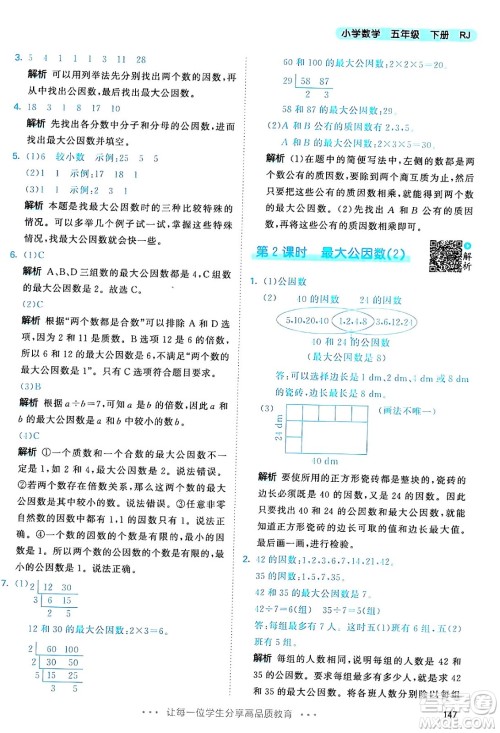 小学数学 五年级 下册 RJ
3. 5 1 4 7 5 1 24 17
解析 可以用列举法先分别找出两个数的因数,
再找出公因数,最后找出最大公因数。
4. 18 3 1 9 1 8
解析 先找出各分数中分子和分母的公因数,
再找出最大公因数并填空。
5. (1)6 较小数 示例:25 5 5
(2)1 1 示例:17 24 1
解析 本题是找最大公因数时的三种比较特殊的
情况。可以先多举几个例子试一试,再总结
规律。
6. (1)C
解析 A、B、D三组数的最大公因数是4,C组
数的最大公因数是8。
(2)C
解析 “两个数都是合数”有多种情况,有可能
两个数的最大公因数是1,如8和9,所以不能
判断两个数的最大公因数一定不是1。B中,因
为2和11的最大公因数是1,2和22的最大公因
数是2,所以B错误。D中,因为1和任何非零自
然数的最大公因数都是1,所以选项错误。同
理,可以判断,只有C选项正确。
(3)B
解析 a÷b=7,说明a是b的倍数,b是a的因
数,所以最大公因数是b。
(4)C
解析 ①一个质数和一个合数的最大公因数不
一定是1,如2和4,最大公因数是2。说法错误。
②两个数的最大公因数可能比这两个数都小,
如4和6,最大公因数是2。说法错误。③两个数
存在因数和倍数关系,则它们的最大公因数是
其中较小的数。说法正确。④任意两个非零
自然数的公因数中一定有1。说法正确。⑤两个
数的最大公因数是这两个数的所有公因数中最
大的。说法正确。
7. (1) 2 12 30
3 6 15
2 5
12和30的最大公因数:2×3=6。
2 60 100
2 30 50
5 15 25
3 5
60和100的最大公因数:2×2×5=20。
2 58 87
2 3
58和87的最大公因数:29。
(2)A和B公有的质因数:2、3、5
A和B的最大公因数:2×3×5=30。
解析 (1)在题中的简便写法中,左侧的数都是
两个数公有的质因数,把这些公有的质因数相
乘,就能得出两个数的最大公因数。(2)先找出
A和B公有的质因数有哪些,然后把这些公有的
质因数相乘,所得的积就是A和B的最大公
因数。
第2课时 最大公因数(2)
解析
1. (1)公因数
(2) 40的因数 24的因数
5,10,20,40 1,2,4,8 3,6,12,24
40和24的公因数
(最大公因数8)
答:可以选择边长是1 dm、2 dm、4 dm、8 dm
的瓷砖,边长最大是8 dm。
(3) (画法不唯一)
24 dm
40 dm
解析 要使所用的正方形瓷砖都是整块的,瓷砖的
边长必须既是40的因数,又是24的因数,瓷砖的
边长必须是40和24的公因数。40和24的公因数
就是正方形瓷砖的边长值,40和24的最大公因数
就是正方形瓷砖的边长的最大值。
2. 42的因数:1,2,3,6,7,14,21,42
35的因数:1,5,7,35
42和35的最大公因数是7。
42÷7=6(组) 35÷7=5(组)
答:每组最多有7人。六(1)班可以分6组,
六(2)班可以分5组。
解析 每组的人数是两个班总人数的公因数。
因为求每组最多有多少人,所以每组的人数就
是两个班人数的最大公因数。
147
让每一位学生分享高品质教育